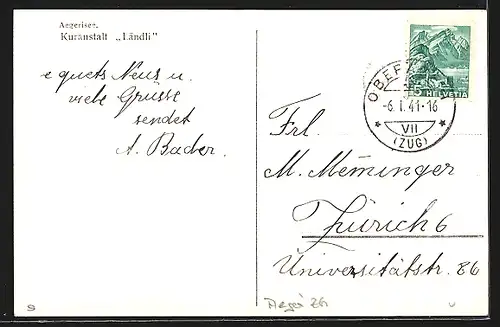 Aegerisee.
Kuranstalt „Ländli"
e guets Neus u.
viele Grüsse
sendet
A. Bader.
5 HELVETIA
OBERÄ
-6.I.41-16
VII
(ZUG)
Frl.
M. Memminger
Zürich 6
Universitätstr. 86